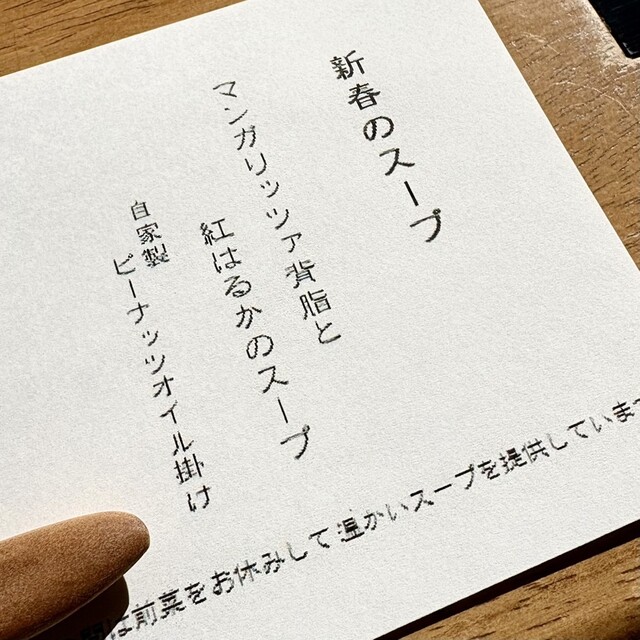 新春のスープ
マンガリッツァ背脂と
紅はるかのスープ
自家製
ピーナッツオイル掛け
は前菜をお休みして温かいスープを提供していま